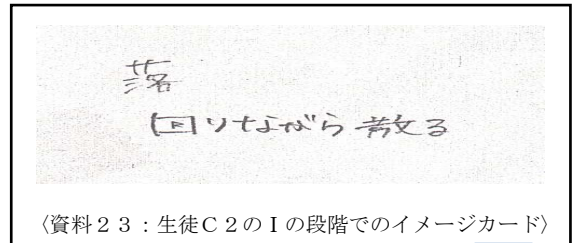 落
回りながら散る
〈資料23：生徒C2のⅠの段階でのイメージカード〉